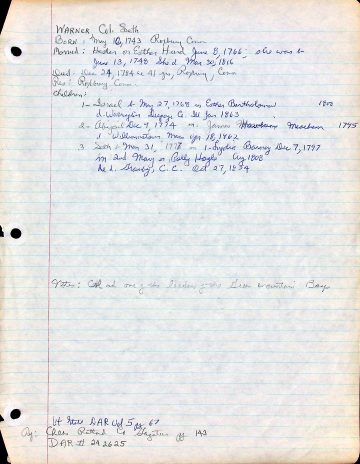 WARNER Col. Seth
BORN: May 10, 1743 Roxbury Conn
Married: Hester or Esther Hurd June 8, 1766 she was b
June 13, 1748 She d Mar 30, 1816
Died: Dec 24, 1784 ae 41 yrs, Roxbury, Conn
Res: Roxbury Conn
Children:
1- Israel b May 27, 1768 m Esther Bartholomew 1800
d. Co Ill Jan 1863
2- Abigail Dec 4, 1774 m. James Meacham 1795
d Williamstown Mass Apr 18, 1862
3 Seth b Mar 31, 1777 m 1- Lydia Barney Dec 7, 1797
m 2nd Mary or Polly Hoyle Aug 1808
he d. Granby, C. E. Oct 27, 1854
Note: Col and one of the leaders of the Green Mountain Boys
DAR Vol 5 pg 67
Rutland Co Gazetteer pg 143
DAR # 242625